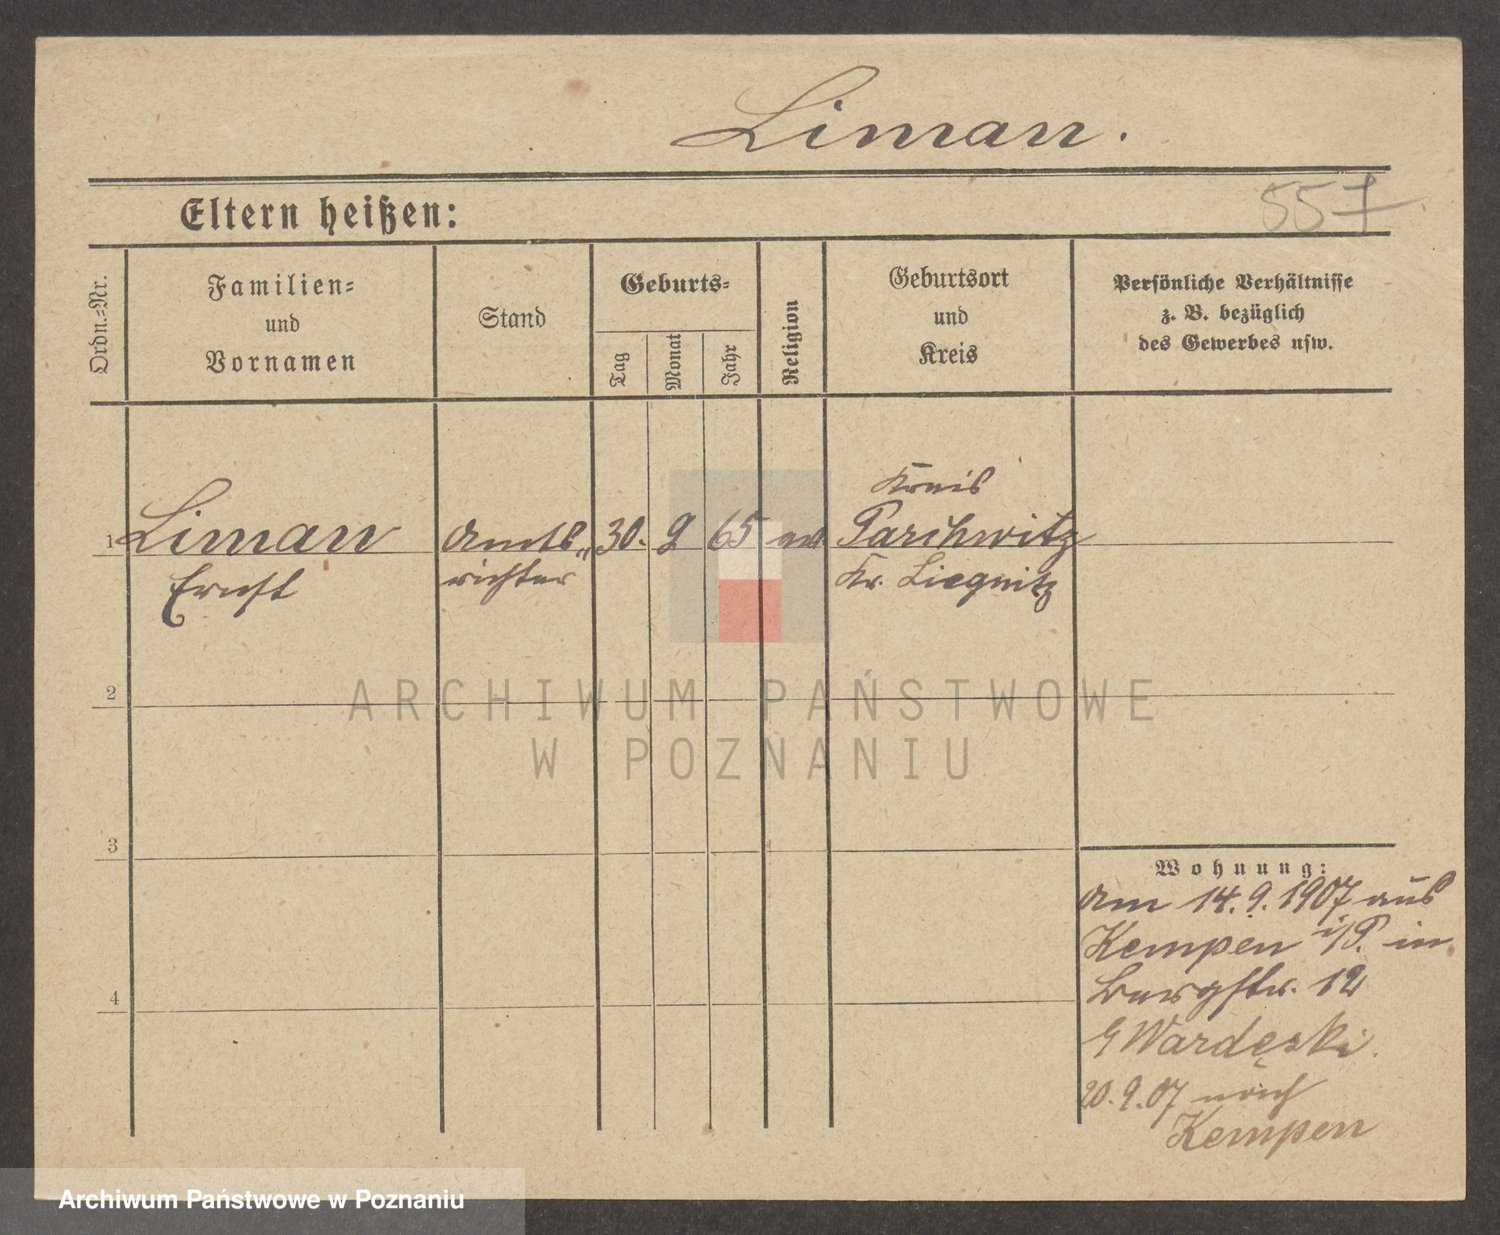 Liman.
557
Eltern heißen:
Ordn.=Nr.
Familien=
und
Vornamen
Stand
Geburts=
Tag
Monat
Jahr
Religion
Geburtsort
und
Kreis
Persönliche Verhältnisse
z. B. bezüglich
des Gewerbes usw.
Kreis
1 Liman Amts„ 30. 9 65 Parchwitz
Ernst richter Kr. Liegnitz
2
3
4
Wohnung:
Am 14.9.1907 aus
Kempen i/P. in
Burgstr. 12
Wardęski
20.9.07 nach
Kempen
ARCHIWUM PAŃSTWOWE
W POZNANIU
Archiwum Państwowe w Poznaniu